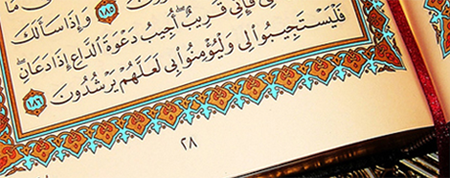 ١٨٥ وَإِذَا سَأَلَكَ
نِّى فَإِنِّى قَرِيبٌ أُجِيبُ دَعْوَةَ ٱلدَّاعِ إِذَا دَعَانِ
فَلْيَسْتَجِيبُوا۟ لِى وَلْيُؤْمِنُوا۟ بِى لَعَلَّهُمْ يَرْشُدُونَ ١٨٦
٢٨